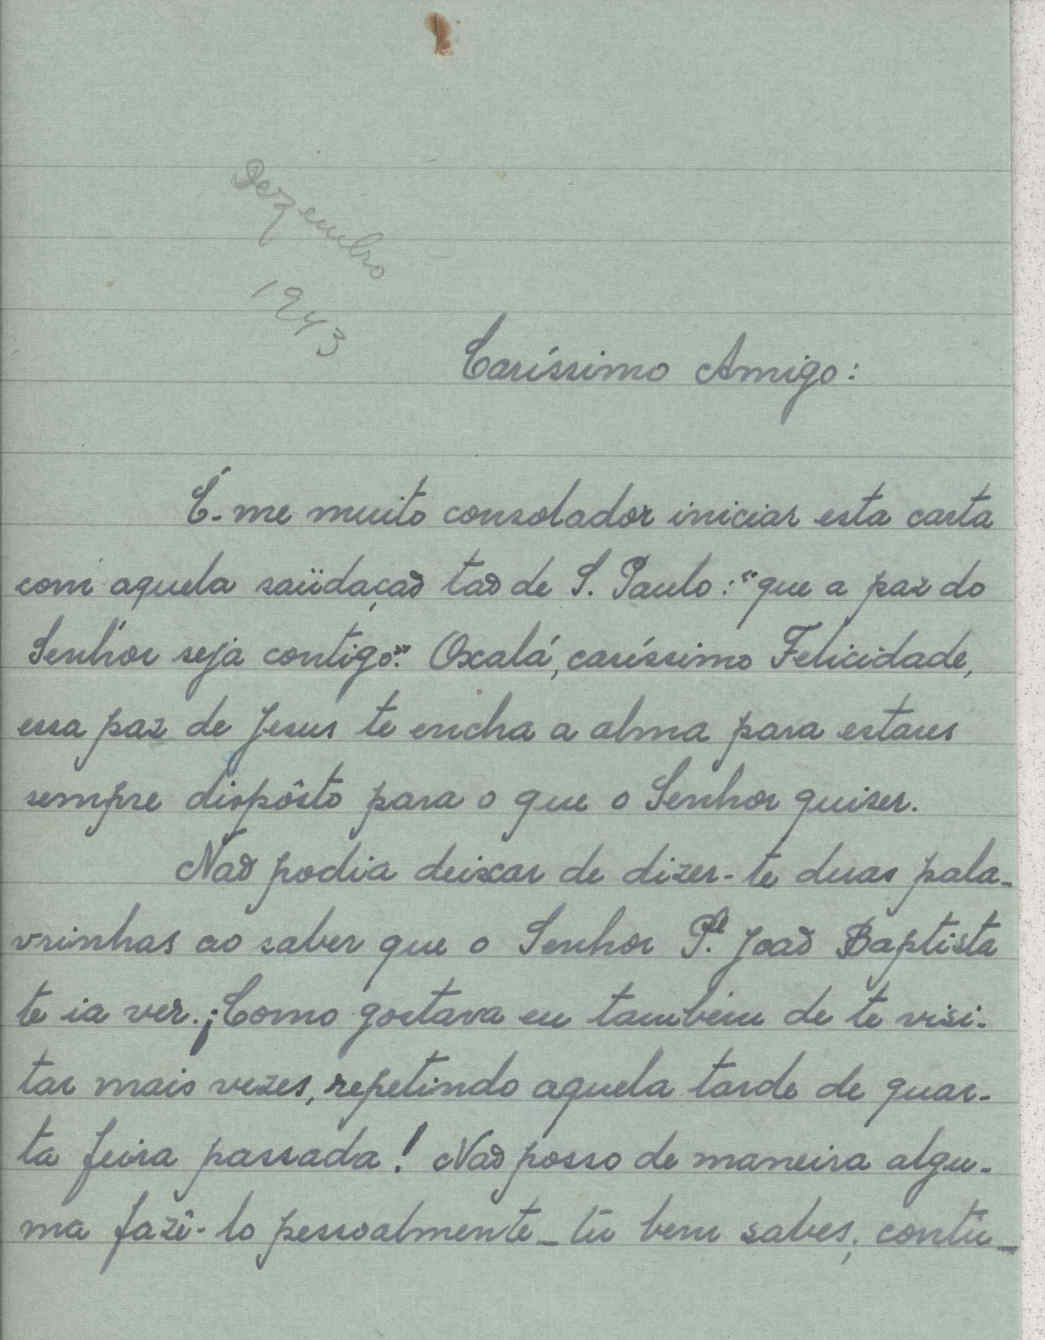 Dezembro
1943
Caríssimo Amigo:
É-me muito consolador iniciar esta carta
com aquela saüdação tão de S. Paulo: "que a paz do
Senhor seja contigo". Oxalá, caríssimo Felicidade,
essa paz de Jesus te encha a alma para estares
sempre dispôsto para o que o Senhor quizer.
Não podia deixar de dizer-te duas pala-
vrinhas ao saber que o Senhor P.e João Baptista
te ia ver. ¡Como gostava eu também de te visi-
tar mais vezes, repetindo aquela tarde de quar-
ta feira passada! Não posso de maneira algu-
ma fazê-lo pessoalmente _ tu bem sabes; contu-